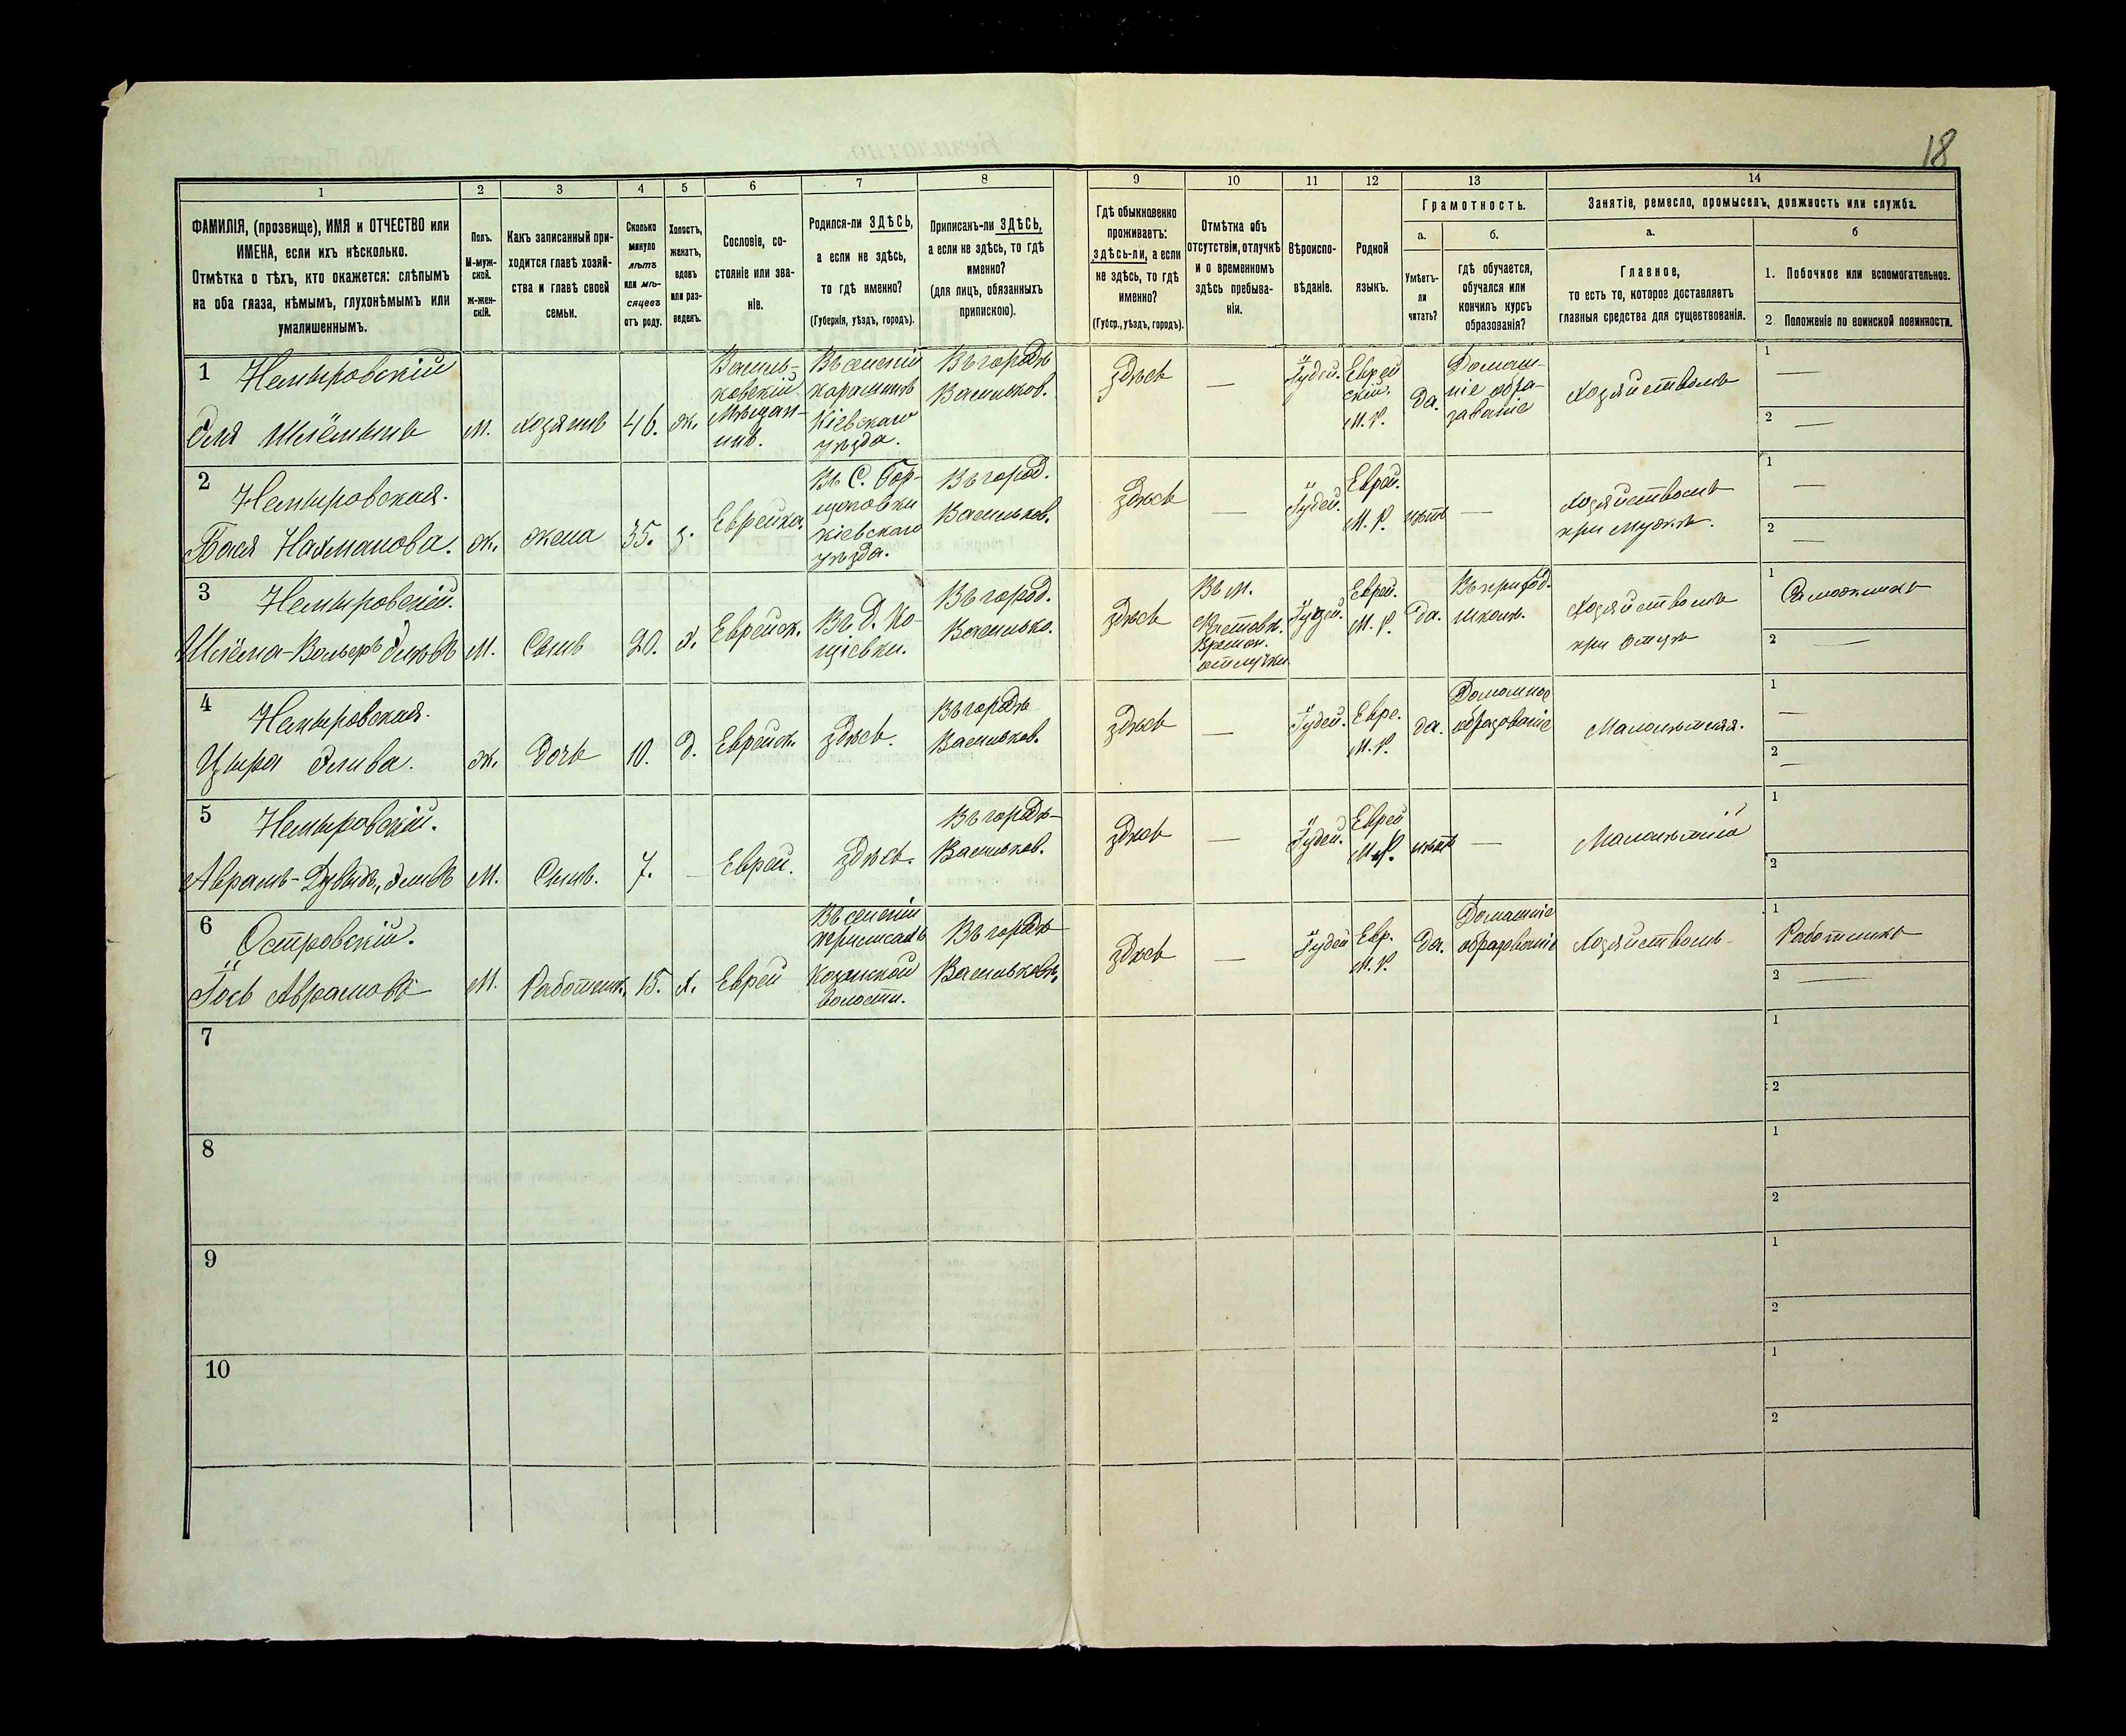 18
1 2 3 4 5 6 7 8 9 10 11 12 13 14
ФАМИЛІЯ, (прозвище), ИМЯ и ОТЧЕСТВО или
ИМЕНА, если ихъ нѣсколько.
Отмѣтка о тѣхъ, кто окажется: слѣпымъ
на оба глаза, нѣмымъ, глухонѣмымъ или
умалишеннымъ.
Полъ.
М-муж-
ской.
Ж-жен-
скій.
Какъ записанный при-
ходится главѣ хозяй-
ства и главѣ своей
семьи.
Сколько
минуло
лѣтъ
или мѣ-
сяцевъ
отъ роду.
Холостъ,
женатъ,
вдовъ
или раз-
веденъ.
Сословіе, со-
стояніе или зва-
ніе.
Родился-ли ЗДѢСЬ,
а если не здѣсь,
то гдѣ именно?
(Губернія, уѣздъ, городъ).
Приписанъ-ли ЗДѢСЬ,
а если не здѣсь, то гдѣ
именно?
(для лицъ, обязанныхъ
припискою).
Гдѣ обыкновенно
проживаетъ:
здѣсь-ли, а если
не здѣсь, то гдѣ
именно?
(Губер., уѣздъ, городъ).
Отмѣтка объ
отсутствіи, отлучкѣ
и о временномъ
здѣсь пребыва-
ніи.
Вѣроиспо-
вѣданіе.
Родной
языкъ.
Грамотность.
а.
Умѣетъ-
ли
читать?
б.
гдѣ обучается,
обучался или
кончилъ курсъ
образованія?
Занятіе, ремесло, промыселъ, должность или служба.
а.
Главное,
то есть то, которое доставляетъ
главныя средства для существованія.
б
1. Побочное или вспомогательное.
2 Положеніе по воинской повинности.
1
Немировскій
Эля Шлёминъ
М.
хозяинъ
46.
ж.
Василь-
ковскій
Мѣщан-
инъ.
Въ селеніи
Кіевскаго
уѣзда.
Въ городѣ
Васильков.
здѣсь
—
Іудей.
Еврей
скій.
М. Р.
Да.
Домаш-
ніе обра-
зованіе
Хозяйствомъ
1
—
2
—
2
Немировская.
Бася Нахманова.
ж.
жена
35.
з.
Еврейка.
Въ С. Гор-
Кіевскаго
уѣзда.
Въ город.
Васильков.
здѣсь
—
Іудей.
Еврей.
М. Р.
нѣтъ
—
Хозяйствомъ
при мужѣ.
1
—
2
—
3
Немировскій.
М.
Сынъ
20.
х.
Еврейск.
Въ Д. Ко-
Въ город.
Василько.
здѣсь
Въ М.
отлучки
Іудей.
Еврей.
М. Р.
Да.
школѣ.
Хозяйствомъ
при отцѣ
1
2
—
4
Немировская.
Цыра Элива.
ж.
Дочь
10.
Д.
Еврейск.
здѣсь.
Въ городѣ
Васильков.
здѣсь
—
Іудей.
Евре.
М. Р.
да.
Домашное
образованіе
Малолѣтняя.
1
—
2
—
5
Немировскій.
Аврамъ-Дувидъ, Эливъ
М.
Сынъ.
7.
—
Еврей.
здѣсь.
Въ городѣ
Васильков.
здѣсь
—
Іудей.
Еврей
М. Р.
нѣтъ
—
Малолѣтній
1
2
6
Островскій.
Іось Аврамовъ
М.
Работник.
15.
х.
Еврей
Въ селеніи
волости.
Въ городѣ
Васильковѣ.
здѣсь
—
Іудей
Евр.
М. Р.
Да.
Домашніе
образованіе
Хозяйствомъ
1
Работникъ
2
—
7
1
2
8
1
2
9
1
2
10
1
2